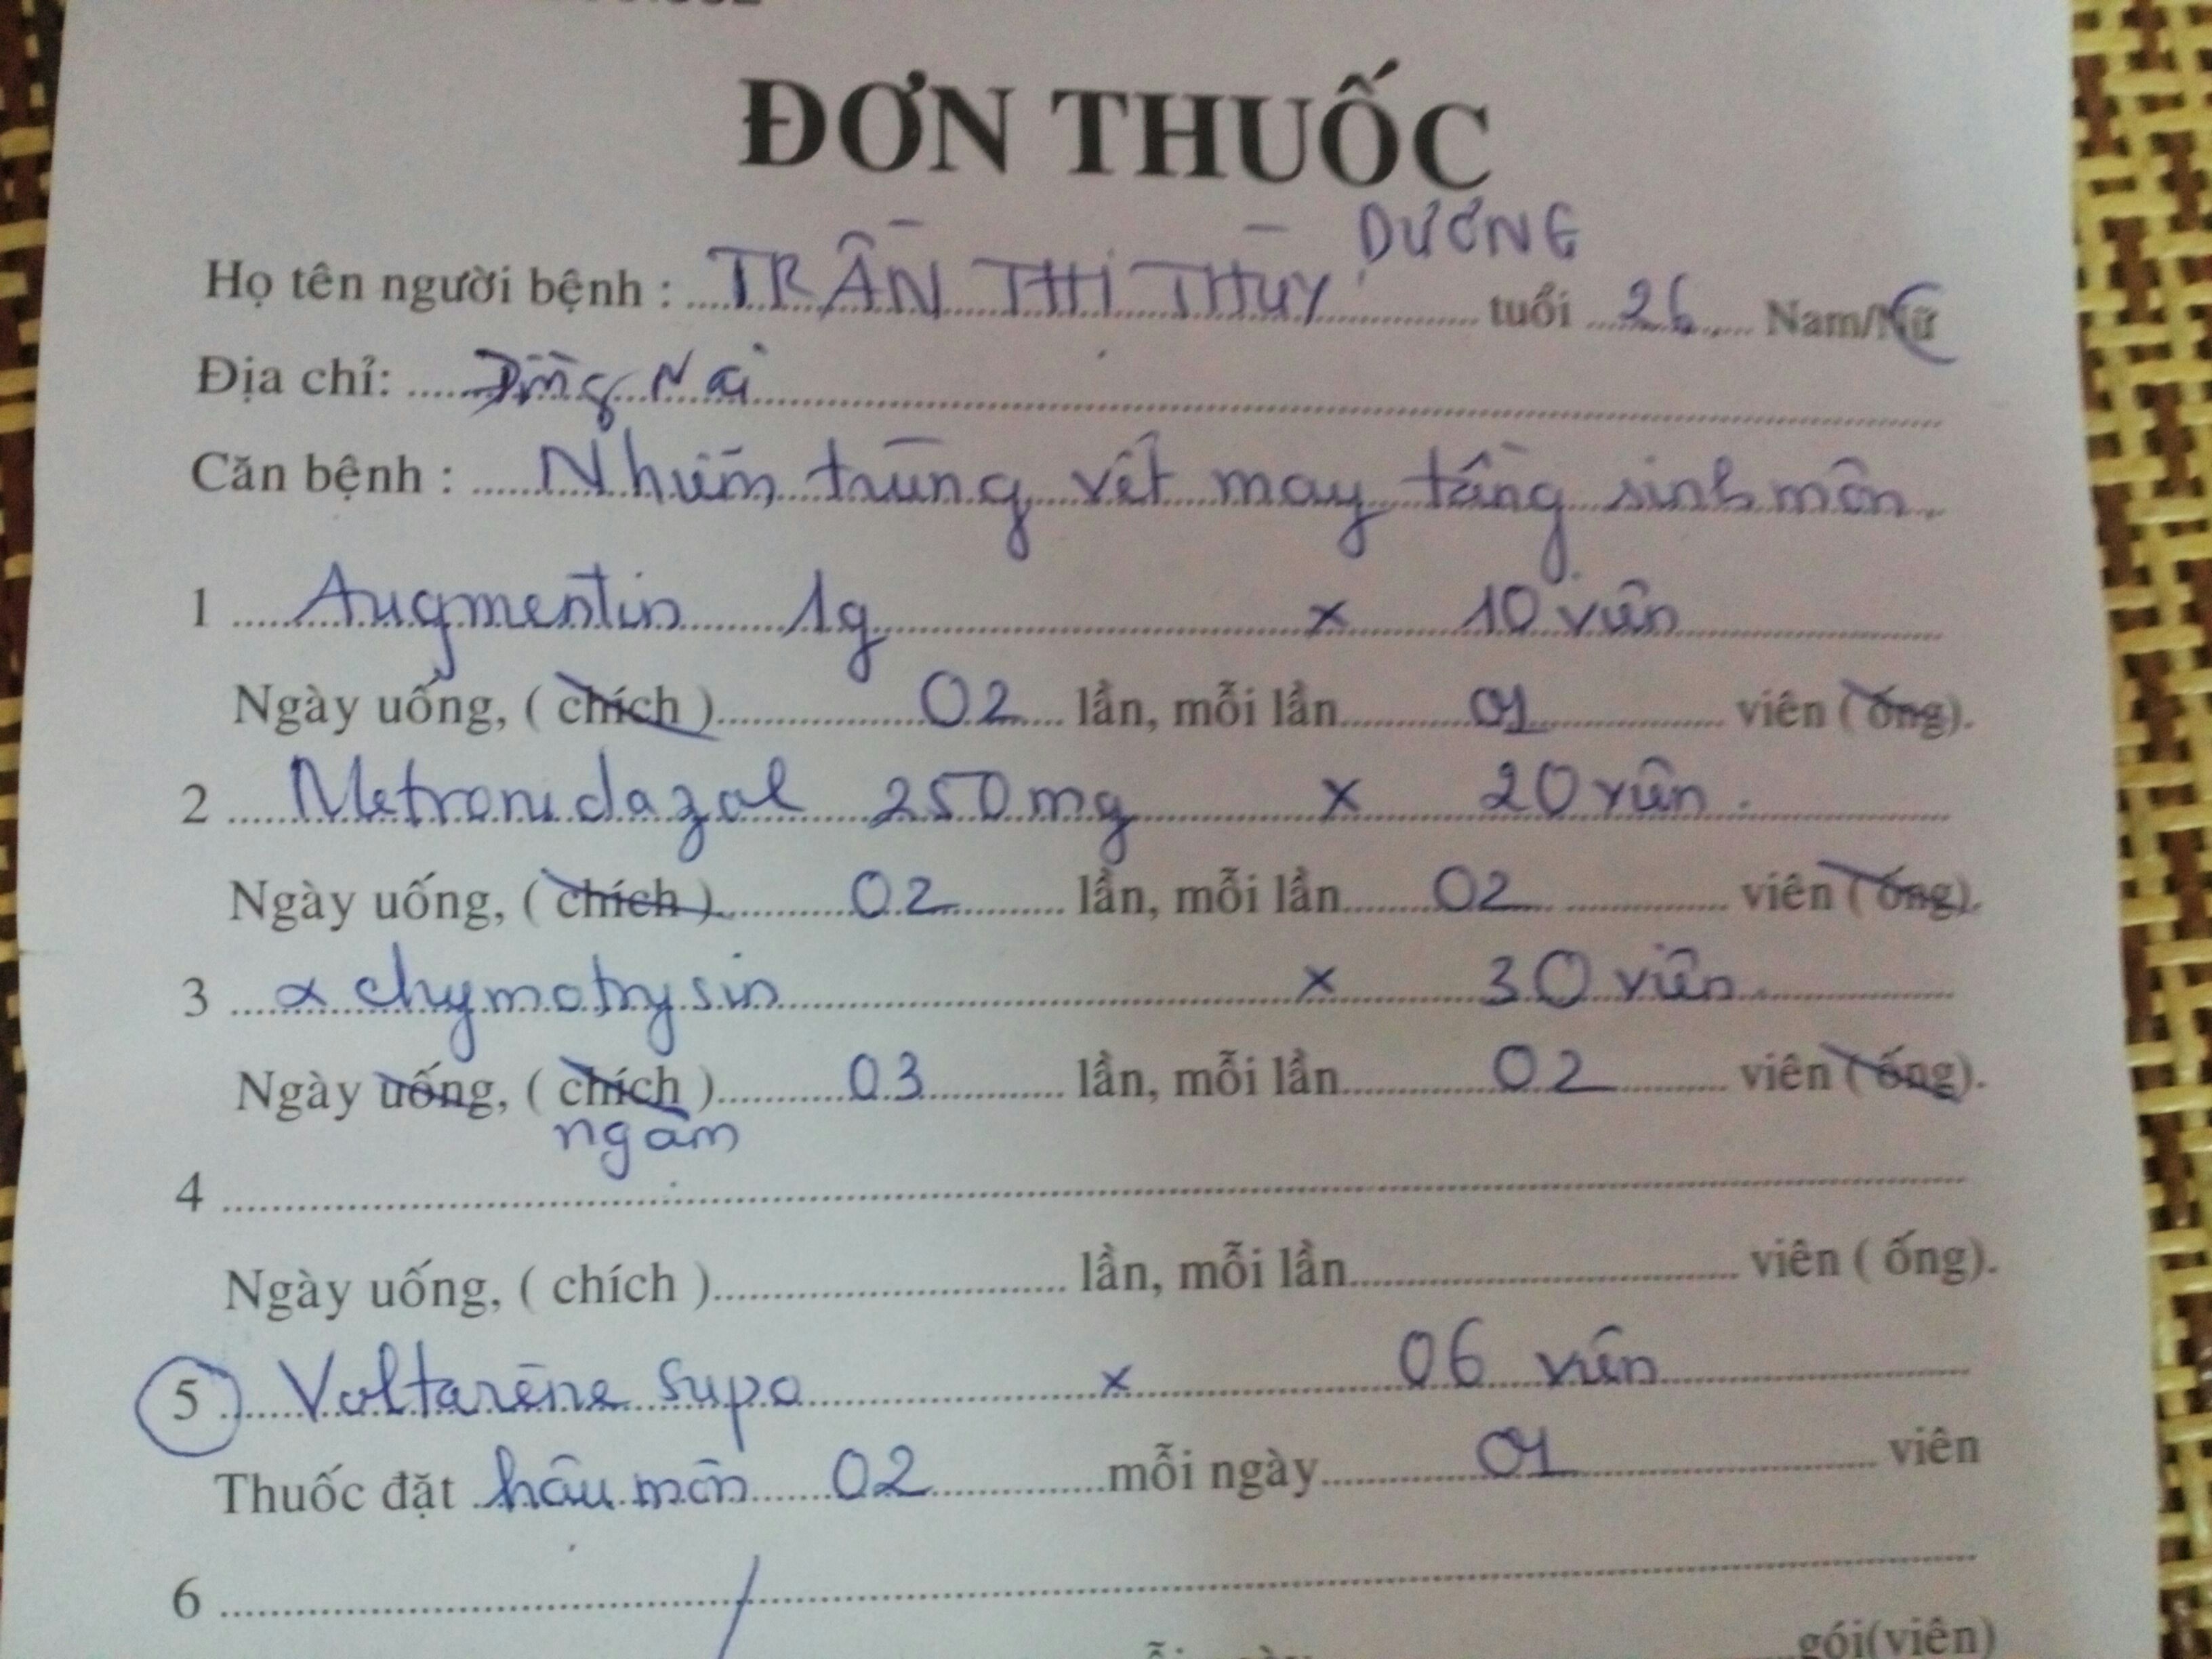 ĐƠN THUỐC
DƯƠNG
Họ tên người bệnh : TRẦN THỊ THÙY tuổi 26 Nam/Nữ
Địa chỉ: Đồng Nai
Căn bệnh : Nhiễm trùng vết may tầng sinh môn.
1 Augmentin 1g x 10 viên
Ngày uống, ( chích ) 02 lần, mỗi lần 01 viên ( ống).
2 Metronidazol 250mg x 20 viên.
Ngày uống, ( chích ) 02 lần, mỗi lần 02 viên ( ống).
3 α chymotrysin x 30 viên.
Ngày uống, ( chích ) 03 lần, mỗi lần 02 viên ( ống).
ngậm
4
Ngày uống, ( chích ) lần, mỗi lần viên ( ống).
5 Voltarène supo x 06 viên
Thuốc đặt hậu môn 02 mỗi ngày 01 viên
6
gói(viên)